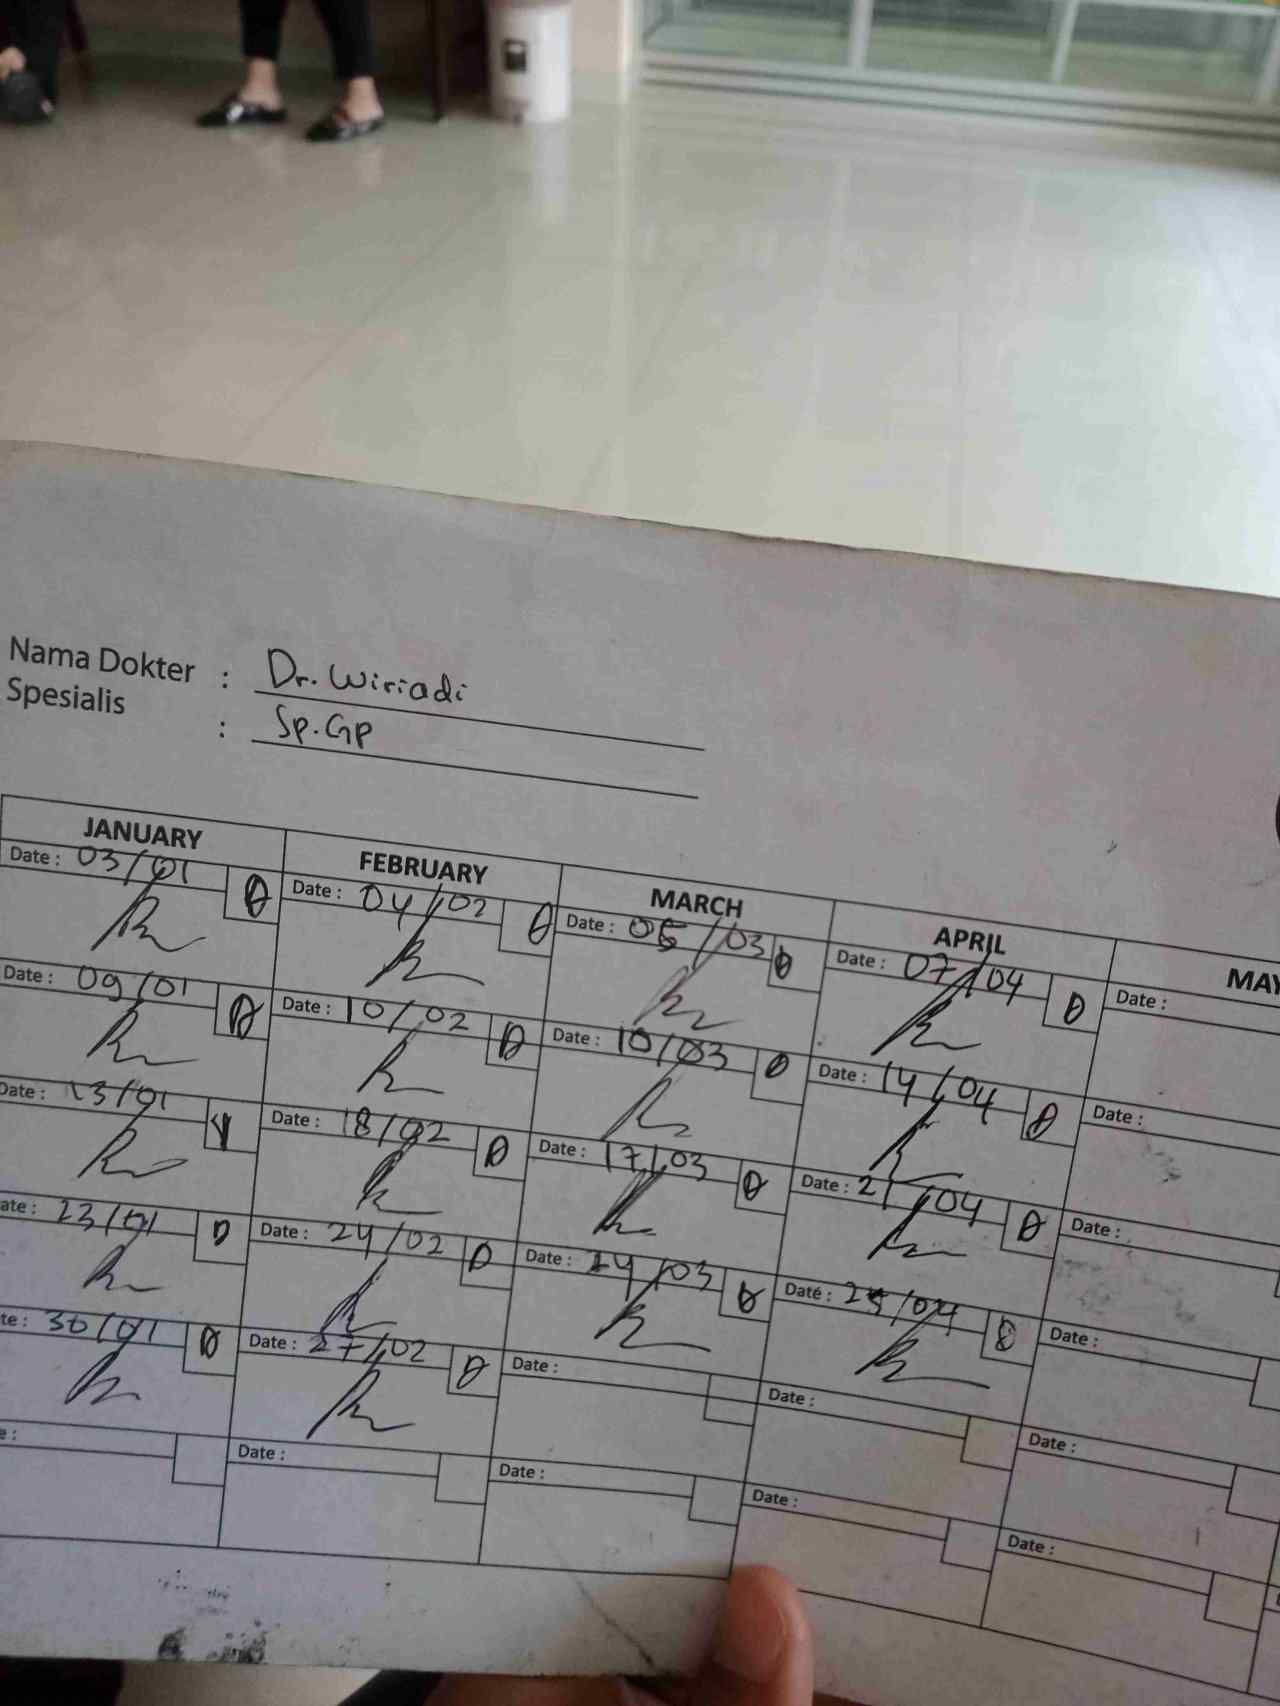 Nama Dokter : Dr. Wiriadi
Spesialis : Sp.GP
JANUARY FEBRUARY MARCH APRIL MAY
Date : 03/01 Date : 04/02 Date : 05/03 Date : 07/04 Date :
Date : 09/01 Date : 10/02 Date : 10/03 Date : 14/04 Date :
Date : 13/01 Date : 18/02 Date : 17/03 Date : 21/04 Date :
ate : 23/01 Date : 24/02 Date : 24/03 Date : 25/04 Date :
te : 30/01 Date : 27/02 Date : Date : Date :
e : Date : Date : Date : Date :